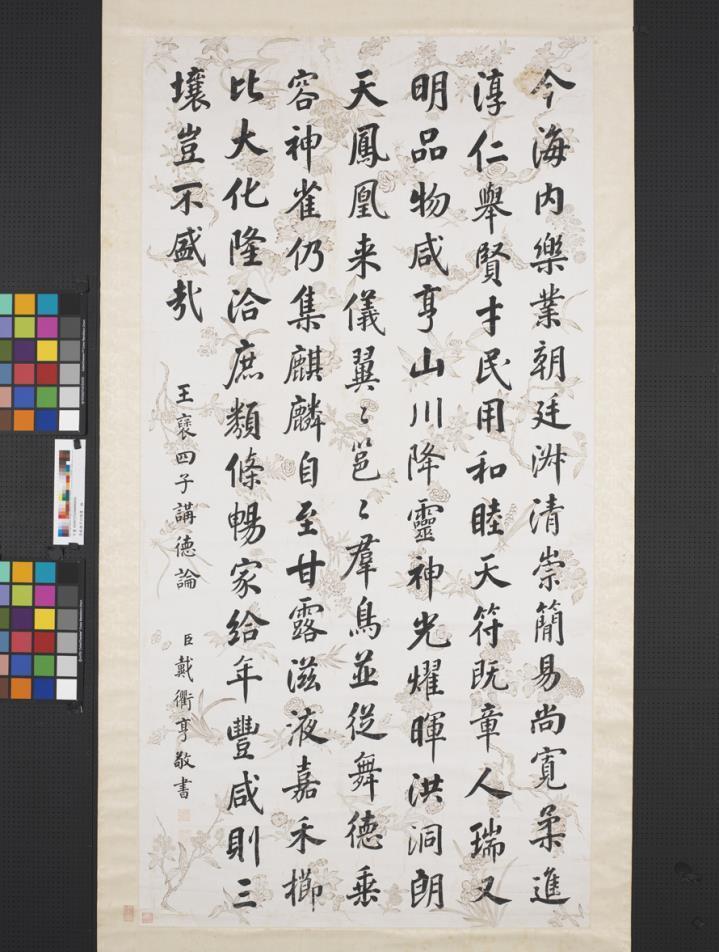 今海内樂業朝廷淑清崇簡易尚寬柔進
淳仁舉賢才民用和睦天符既章人瑞又
明品物咸亨山川降靈神光燿暉洪洞朗
天鳳凰来儀翼〻邕〻羣鳥並從舞德垂
容神雀仍集麒麟自至甘露滋液嘉禾櫛
比大化隆洽庶類條暢家給年豐咸則三
壤豈不盛哉
王褒四子講德論
臣戴衢亨敬書